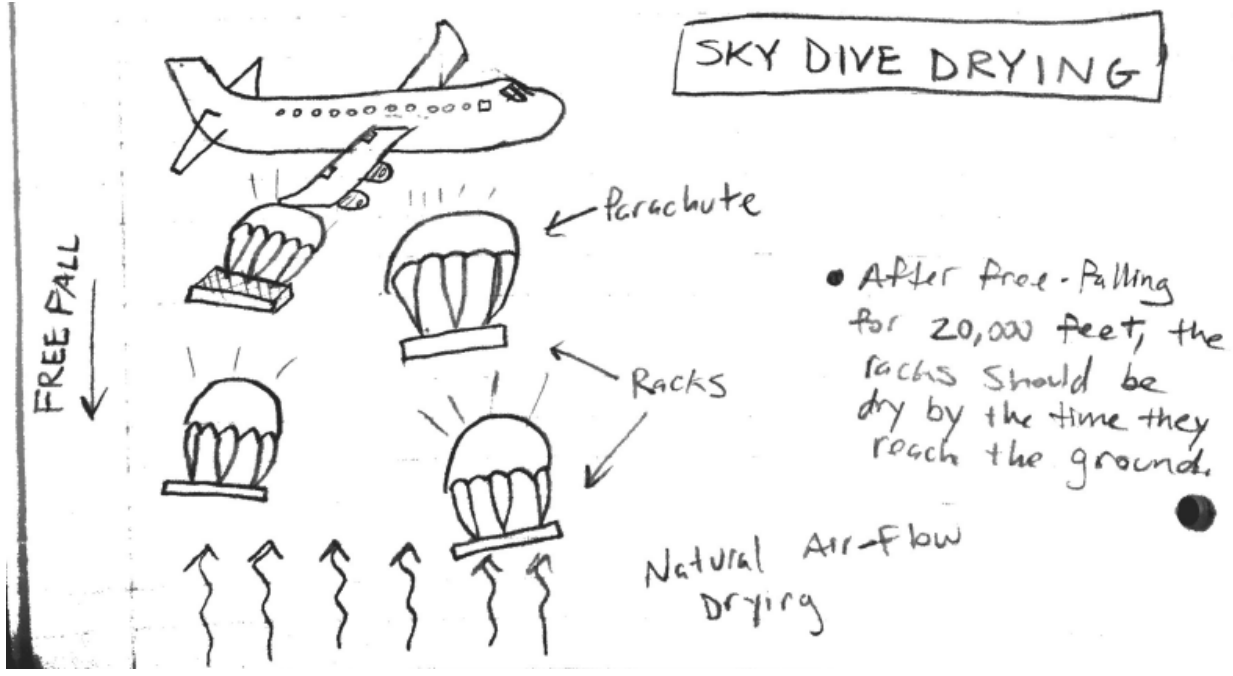 SKY DIVE DRYING
Parachute
FREE FALL
• After free-falling
for 20,000 feet, the
racks should be
dry by the time they
reach the ground.
Racks
Natural Air-Flow
Drying